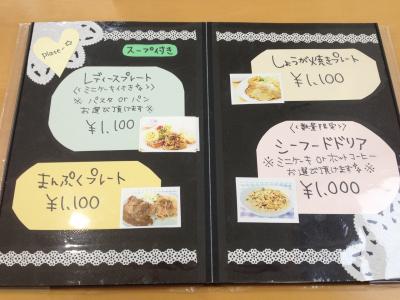 plate
スープ付き
レディースプレート
<<ミニケーキ付き>>
※ パスタ or パン
お選び頂けます※
¥1,100
まんぷくプレート
¥1,100
しょうが焼きプレート
¥1,100
<<数量限定>>
シーフードドリア
※ミニケーキ or ホットコーヒー
お選び頂けます※
¥1,000